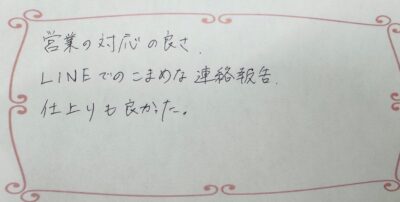 営業の対応の良さ.
LINEでのこまめな連絡報告.
仕上りも良かった。